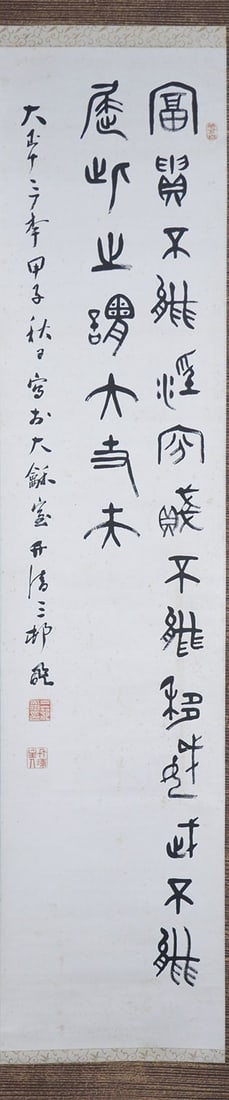 富貴不能淫貧賤不能移威武不能
屈此之謂大丈夫
大正十三年甲子秋日寫於大龢室丹清三邨